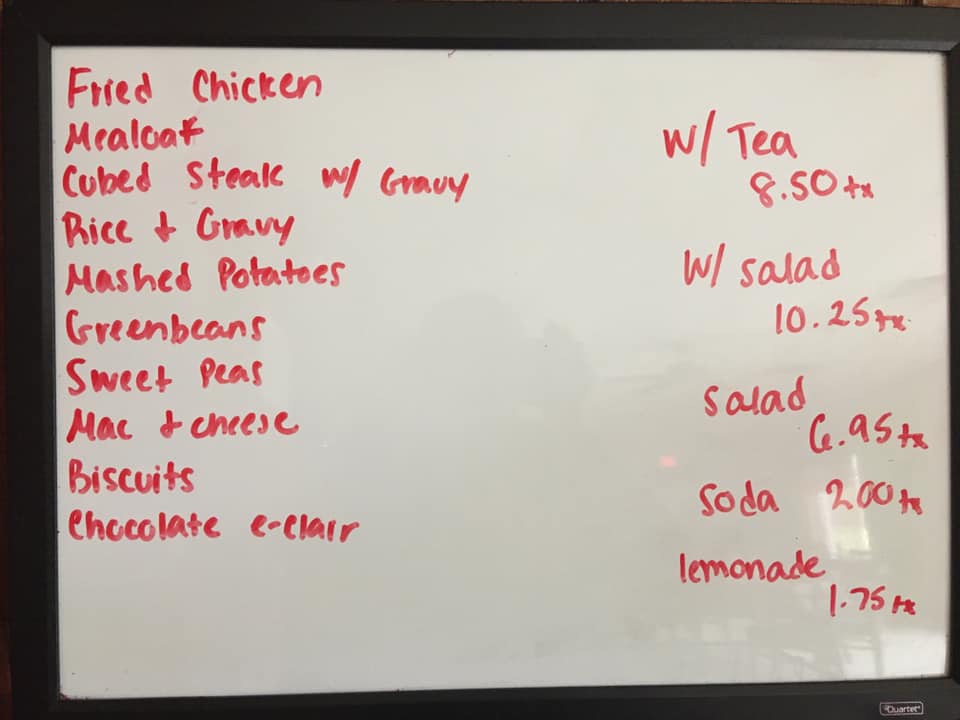 Fried Chicken
Mealoaf
Cubed Steak w/ Gravy
Rice & Gravy
Mashed Potatoes
Greenbeans
Sweet Peas
Mac & cheese
Biscuits
Chocolate e-clair
w/ Tea
8.50 tx
w/ salad
10.25 tx
salad
6.95 tx
soda 2.00 tx
lemonade
1.75 tx
Quartet